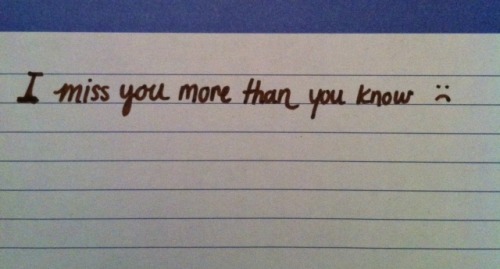 I miss you more than you know :(